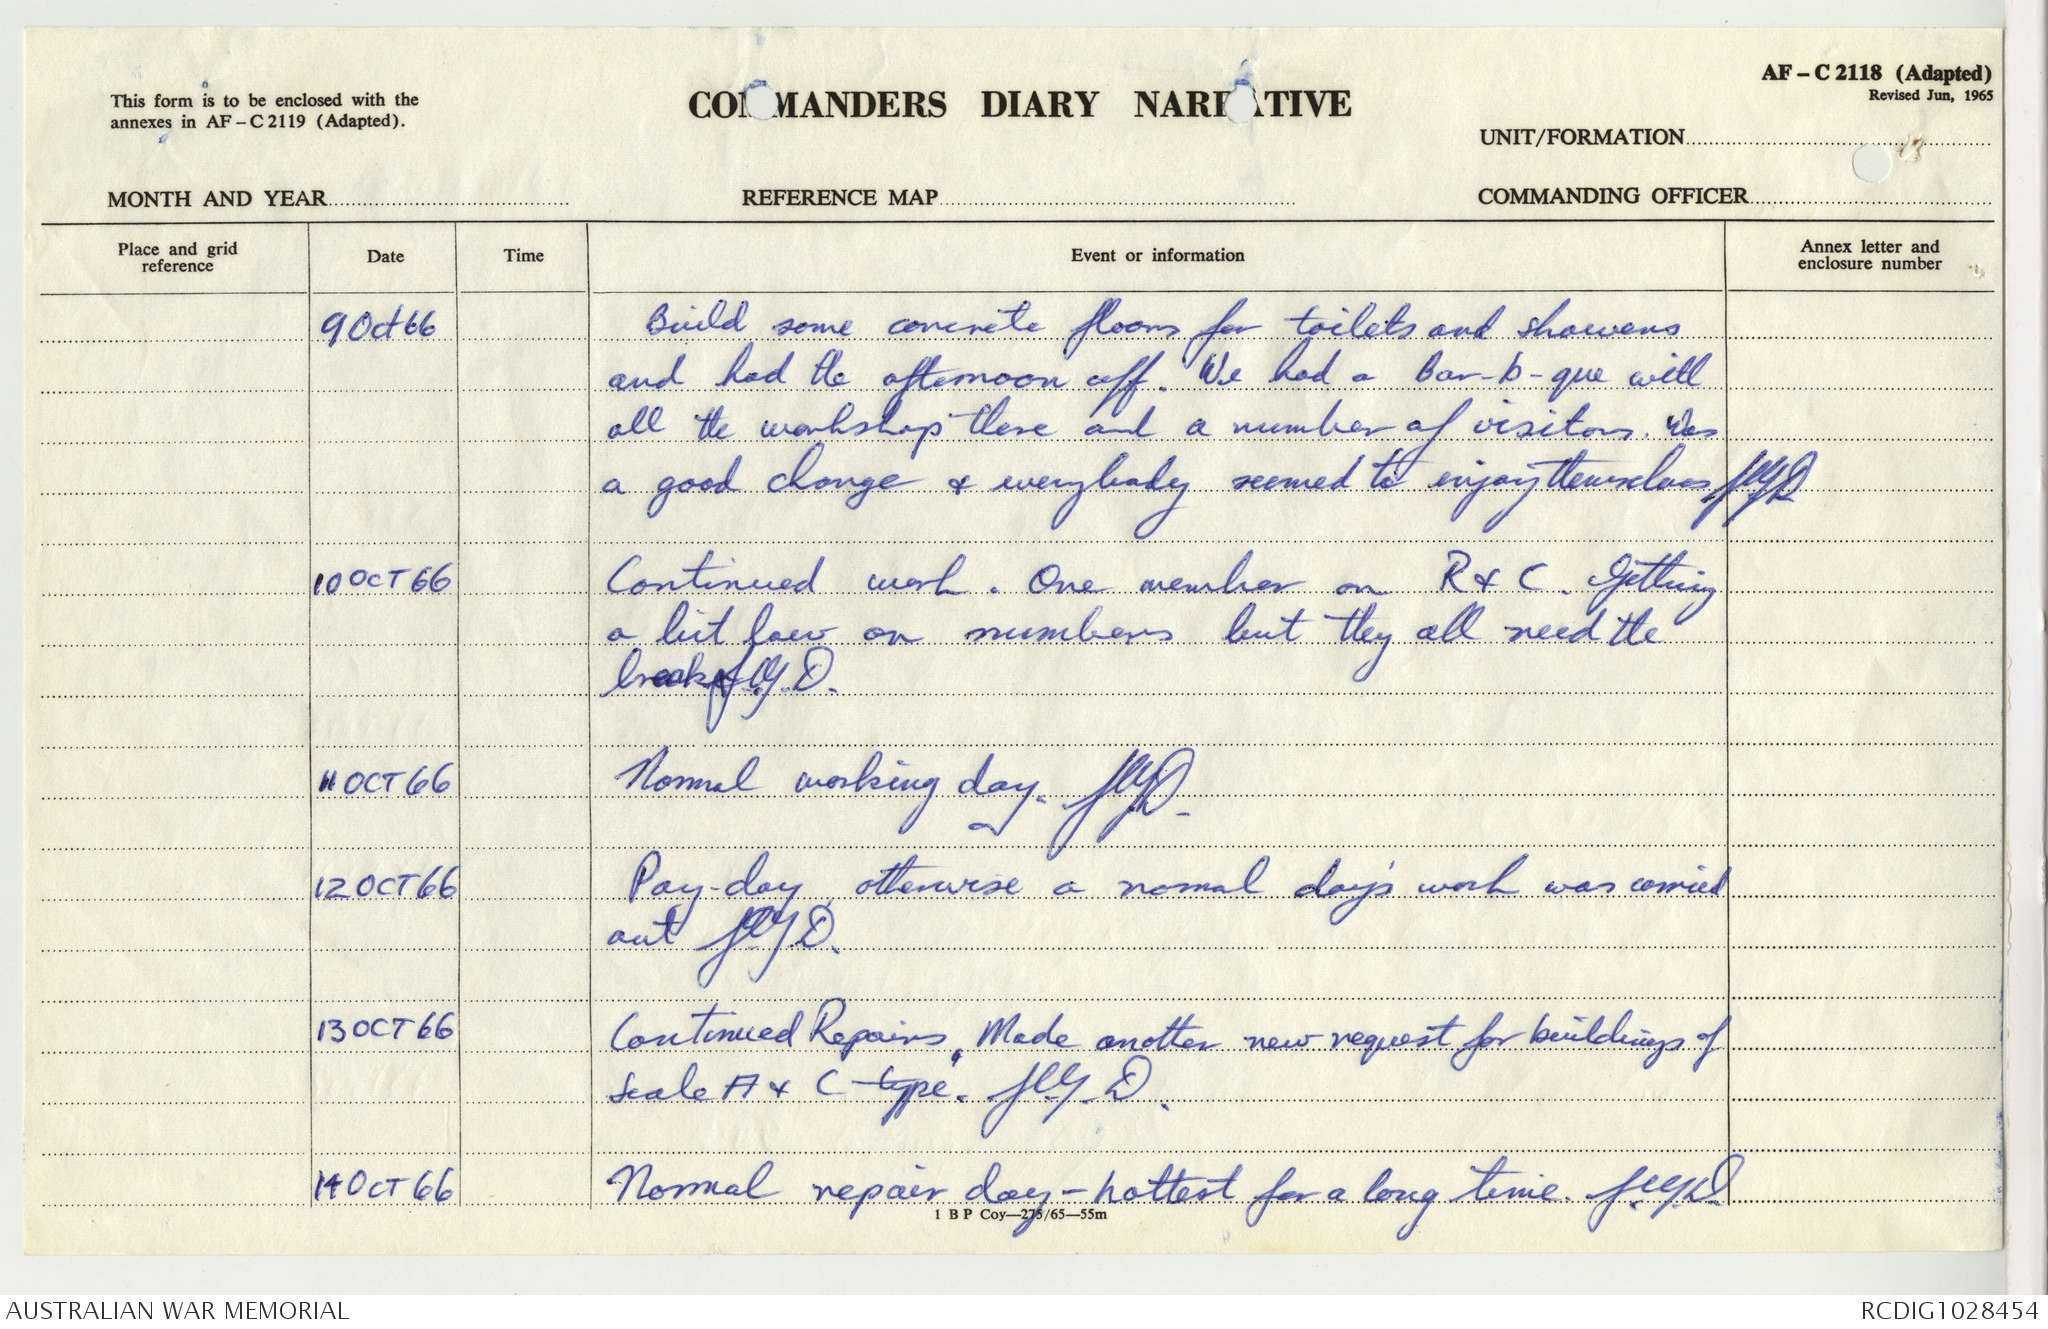 This form is to be enclosed with the
annexes in AF – C 2119 (Adapted).
COMMANDERS DIARY NARRATIVE
AF – C 2118 (Adapted)
Revised Jun, 1965
UNIT/FORMATION
MONTH AND YEAR
REFERENCE MAP
COMMANDING OFFICER
Place and grid
reference
Date
Time
Event or information
Annex letter and
enclosure number
9 Oct 66 Build some concrete floors for toilets and showers
and had the afternoon off. We had a Bar-b-que with
all the workshop there and a number of visitors. Was
a good change & everybody seemed to enjoy themselves
10 OCT 66 Continued work. One member on R & C. Getting
a bit low on numbers but they all need the
break
11 OCT 66 Normal working day.
12 OCT 66 Pay-day, otherwise a normal day's work was carried
out
13 OCT 66 Continued Repairs. Made another new request for buildings of
Scale A & C type.
14 OCT 66 Normal repair day – hottest for a long time.
1 B P Coy—275/65—55m
AUSTRALIAN WAR MEMORIAL
RCDIG1028454